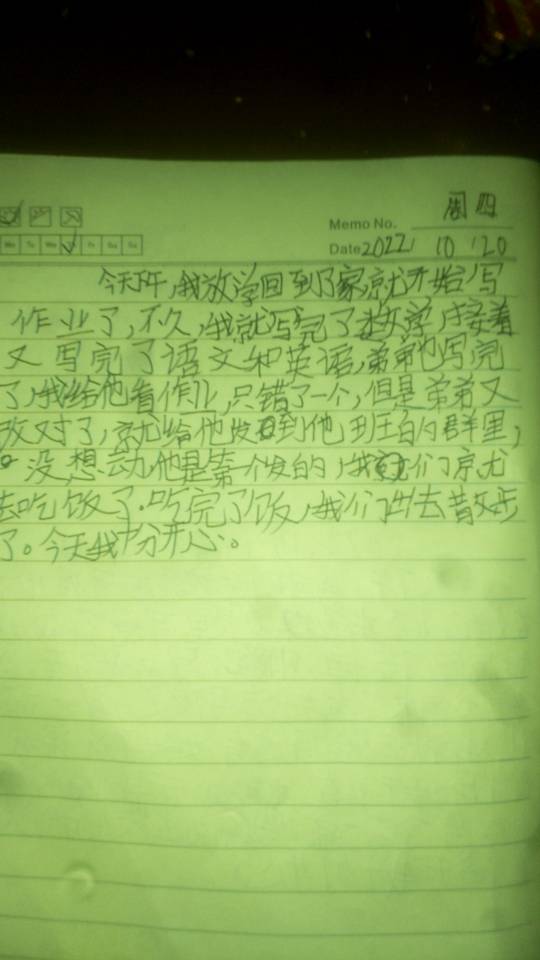 Memo No. 周四
Mo Tu We Th Fr Sa Su
Date 2022 10 20
今天下午,我放学回到了家,就开始写
作业了,不久,我就写完了数学,接着
又写完了语文和英语,弟弟也写完
了,我给他看作业,只错了一个,但是弟弟又
改对了,就给他发到他班的群里,
没想动他是第一个发的,我们就
去吃饭了.吃完了饭,我们出去散步
了。今天我十分开心。